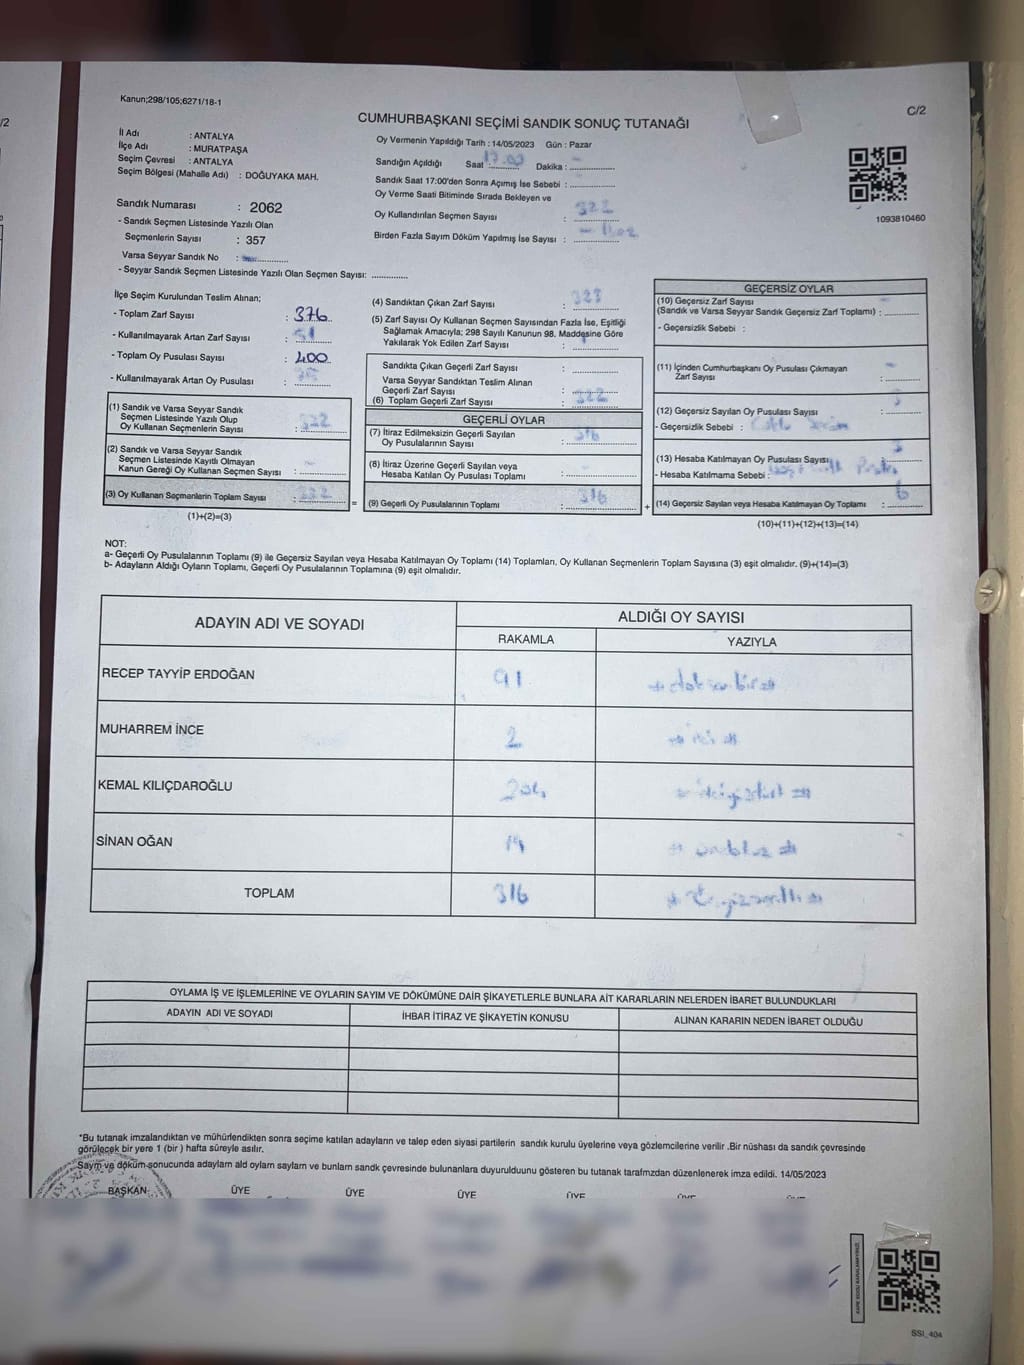 /2
Kanun;298/105;6271/18-1
C/2
CUMHURBAŞKANI SEÇİMİ SANDIK SONUÇ TUTANAĞI
İl Adı : ANTALYA
İlçe Adı : MURATPAŞA
Seçim Çevresi : ANTALYA
Seçim Bölgesi (Mahalle Adı) : DOĞUYAKA MAH.
Sandık Numarası : 2062
- Sandık Seçmen Listesinde Yazılı Olan
Seçmenlerin Sayısı : 357
Varsa Seyyar Sandık No :
- Seyyar Sandık Seçmen Listesinde Yazılı Olan Seçmen Sayısı:
Oy Vermenin Yapıldığı Tarih : 14/05/2023 Gün : Pazar
Sandığın Açıldığı Saat 17.00 Dakika :
Sandık Saat 17:00'den Sonra Açımış İse Sebebi :
Oy Verme Saati Bitiminde Sırada Bekleyen ve
Oy Kullandırılan Seçmen Sayısı : 322
Birden Fazla Sayım Döküm Yapılmış İse Sayısı :
1093810460
İlçe Seçim Kurulundan Teslim Alınan;
- Toplam Zarf Sayısı : 376
- Kullanılmayarak Artan Zarf Sayısı : 51
- Toplam Oy Pusulası Sayısı : 400
- Kullanılmayarak Artan Oy Pusulası : 75
(1) Sandık ve Varsa Seyyar Sandık
Seçmen Listesinde Yazılı Olup
Oy Kullanan Seçmenlerin Sayısı : 322
(2) Sandık ve Varsa Seyyar Sandık
Seçmen Listesinde Kayıtlı Olmayan
Kanun Gereği Oy Kullanan Seçmen Sayısı : -
(3) Oy Kullanan Seçmenlerin Toplam Sayısı : 322
(1)+(2)=(3)
=
(4) Sandıktan Çıkan Zarf Sayısı : 323
(5) Zarf Sayısı Oy Kullanan Seçmen Sayısından Fazla İse, Eşitliği
Sağlamak Amacıyla; 298 Sayılı Kanunun 98. Maddesine Göre
Yakılarak Yok Edilen Zarf Sayısı :
Sandıkta Çıkan Geçerli Zarf Sayısı :
Varsa Seyyar Sandıktan Teslim Alınan
Geçerli Zarf Sayısı :
(6) Toplam Geçerli Zarf Sayısı : 322
GEÇERLİ OYLAR
(7) İtiraz Edilmeksizin Geçerli Sayılan
Oy Pusulalarının Sayısı : 316
(8) İtiraz Üzerine Geçerli Sayılan veya
Hesaba Katılan Oy Pusulası Toplamı :
(9) Geçerli Oy Pusulalarının Toplamı : 316
+
GEÇERSİZ OYLAR
(10) Geçersiz Zarf Sayısı
(Sandık ve Varsa Seyyar Sandık Geçersiz Zarf Toplamı) : -
- Geçersizlik Sebebi :
(11) İçinden Cumhurbaşkanı Oy Pusulası Çıkmayan
Zarf Sayısı : -
(12) Geçersiz Sayılan Oy Pusulası Sayısı : 3
- Geçersizlik Sebebi :
(13) Hesaba Katılmayan Oy Pusulası Sayısı : 3
- Hesaba Katılmama Sebebi :
(14) Geçersiz Sayılan veya Hesaba Katılmayan Oy Toplamı : 6
(10)+(11)+(12)+(13)=(14)
NOT:
a- Geçerli Oy Pusulalarının Toplamı (9) ile Geçersiz Sayılan veya Hesaba Katılmayan Oy Toplamı (14) Toplamları, Oy Kullanan Seçmenlerin Toplam Sayısına (3) eşit olmalıdır. (9)+(14)=(3)
b- Adayların Aldığı Oyların Toplamı, Geçerli Oy Pusulalarının Toplamına (9) eşit olmalıdır.
ADAYIN ADI VE SOYADI
ALDIĞI OY SAYISI
RAKAMLA YAZIYLA
RECEP TAYYİP ERDOĞAN 91 # doksanbir #
MUHARREM İNCE 2 # iki #
KEMAL KILIÇDAROĞLU 204 # ikiyüzdört #
SİNAN OĞAN 19 # ondokuz #
TOPLAM 316 # üçyüzonaltı #
OYLAMA İŞ VE İŞLEMLERİNE VE OYLARIN SAYIM VE DÖKÜMÜNE DAİR ŞİKAYETLERLE BUNLARA AİT KARARLARIN NELERDEN İBARET BULUNDUKLARI
ADAYIN ADI VE SOYADI İHBAR İTİRAZ VE ŞİKAYETİN KONUSU ALINAN KARARIN NEDEN İBARET OLDUĞU
*Bu tutanak imzalandıktan ve mühürlendikten sonra seçime katılan adayların ve talep eden siyasi partilerin sandık kurulu üyelerine veya gözlemcilerine verilir .Bir nüshası da sandık çevresinde
görülecek bir yere 1 (bir ) hafta süreyle asılır.
Sayım ve döküm sonucunda adayların ald oyların sayların ve bunların sandık çevresinde bulunanlara duyurulduunu gösteren bu tutanak tarafmzdan düzenlenerek imza edildi. 14/05/2023
BAŞKAN ÜYE ÜYE ÜYE ÜYE ÜYE ÜYE
SSI_404